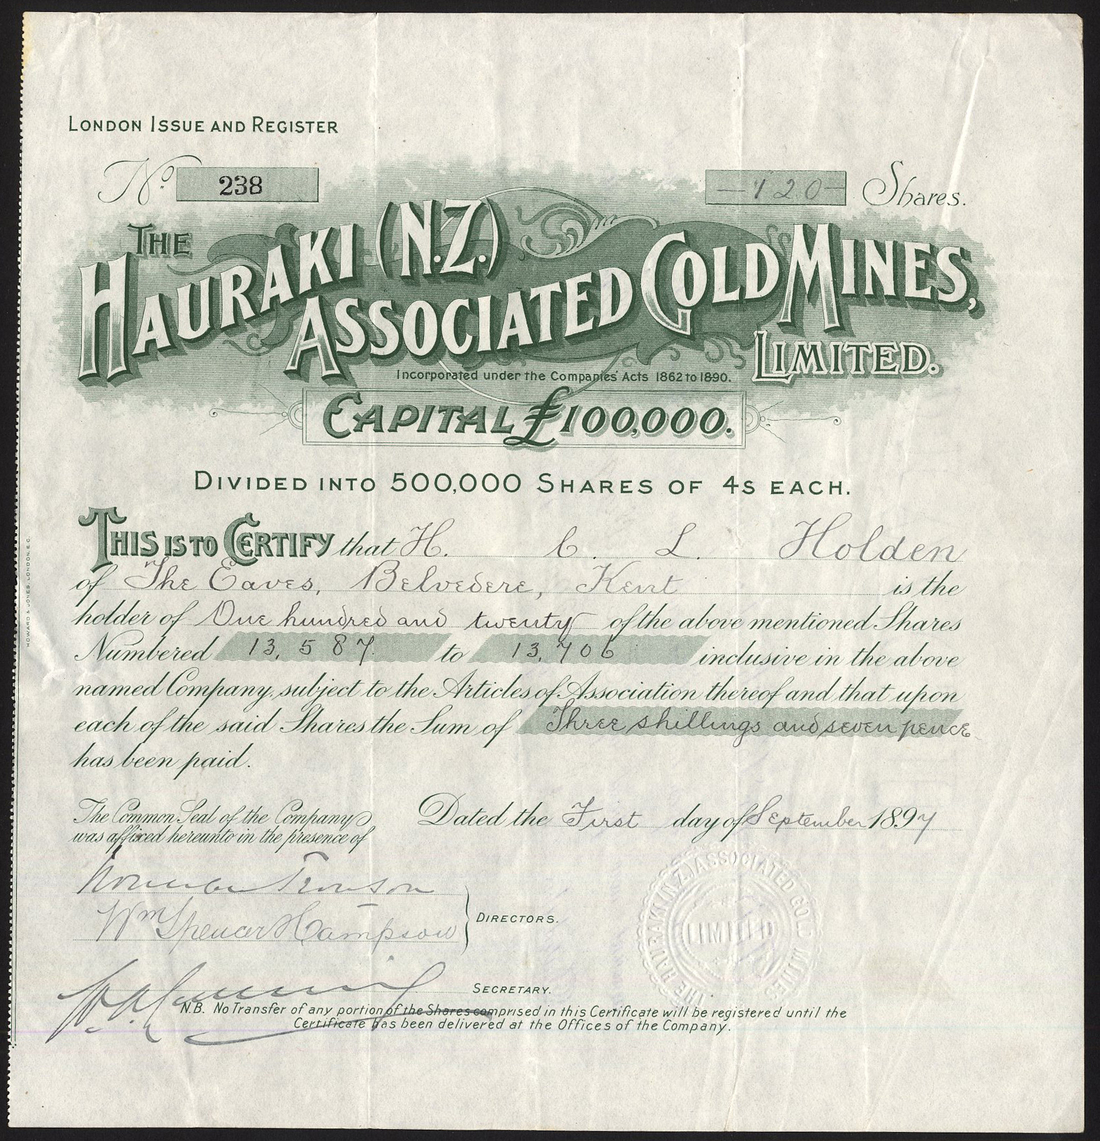 LONDON ISSUE AND REGISTER
No. 238 —120— Shares.
THE
HAURAKI (N.Z.)
ASSOCIATED GOLD MINES,
LIMITED.
Incorporated under the Companies' Acts 1862 to 1890.
CAPITAL £100,000.
DIVIDED INTO 500,000 SHARES OF 4S EACH.
THIS IS TO CERTIFY that H. C. L. Holden
of The Eaves, Belvedere, Kent is the
holder of One hundred and twenty of the above mentioned Shares
Numbered 13,587 to 13,706 inclusive in the above
named Company, subject to the Articles of Association thereof and that upon
each of the said Shares the Sum of Three shillings and seven pence
has been paid.
The Common Seal of the Company
was affixed hereunto in the presence of
Dated the First day of September 1897
Wm Spencer Hampson
DIRECTORS.
SECRETARY.
N.B. No Transfer of any portion of the Shares comprised in this Certificate will be registered until the
Certificate has been delivered at the Offices of the Company.
THE HAURAKI (N.Z.) ASSOCIATED GOLD MINES
LIMITED